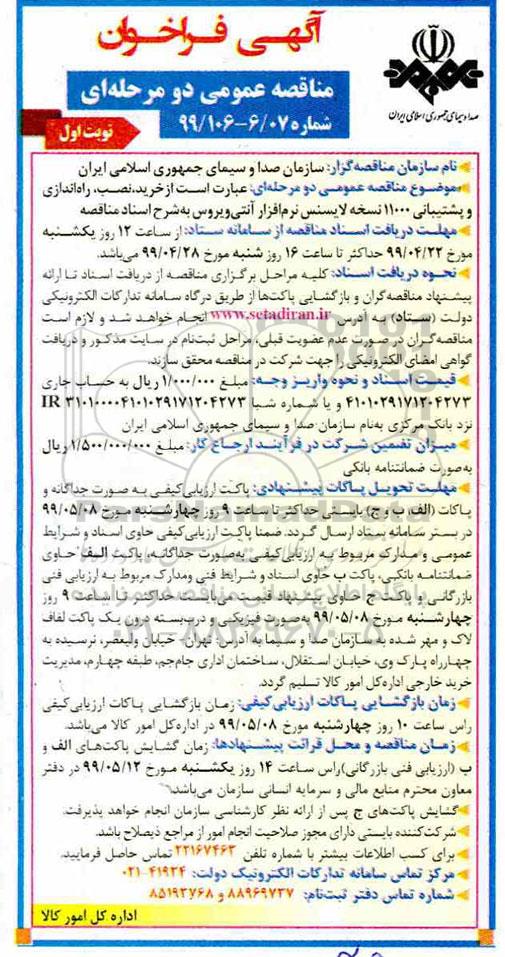 آگهی فراخوان
صدا و سیمای جمهوری اسلامی ایران
مناقصه عمومی دو مرحله‌ای
شماره ۹۹/۱۰۶-۶/۰۷
نوبت اول
نام سازمان مناقصه‌گزار: سازمان صدا و سیمای جمهوری اسلامی ایران
موضوع مناقصه عمومی دو مرحله‌ای: عبارت است از خرید، نصب، راه‌اندازی
و پشتیبانی ۱۱۰۰۰ نسخه لایسنس نرم‌افزار آنتی‌ویروس به‌شرح اسناد مناقصه
مهلت دریافت اسناد مناقصه از سامانه ستاد: از ساعت ۱۲ روز یکشنبه
مورخ ۹۹/۰۴/۲۲ حداکثر تا ساعت ۱۶ روز شنبه مورخ ۹۹/۰۴/۲۸ می‌باشد.
نحوه دریافت اسناد: کلیه مراحل برگزاری مناقصه از دریافت اسناد تا ارائه
پیشنهاد مناقصه‌گران و بازگشایی پاکت‌ها از طریق درگاه سامانه تدارکات الکترونیکی
دولت (ستاد) به آدرس www.setadiran.ir انجام خواهد شد و لازم است
مناقصه‌گران در صورت عدم عضویت قبلی، مراحل ثبت‌نام در سایت مذکور و دریافت
گواهی امضای الکترونیکی را جهت شرکت در مناقصه محقق سازند.
قیمت اسناد و نحوه واریز وجه: مبلغ ۱/۰۰۰/۰۰۰ ریال به حساب جاری
۴۱۰۱۰۲۹۱۷۱۲۰۴۲۷۳ و یا شماره شبا IR ۳۱۰۱۰۰۰۰۴۱۰۱۰۲۹۱۷۱۲۰۴۲۷۳
نزد بانک مرکزی به‌نام سازمان صدا و سیمای جمهوری اسلامی ایران
میزان تضمین شرکت در فرآیند ارجاع کار: مبلغ ۱/۵۰۰/۰۰۰/۰۰۰ ریال
به‌صورت ضمانتنامه بانکی
مهلت تحویل پاکات پیشنهادی: پاکت ارزیابی‌کیفی به صورت جداگانه و
پاکات (الف، ب و ج) بایستی حداکثر تا ساعت ۹ روز چهارشنبه مورخ ۹۹/۰۵/۰۸
در بستر سامانه ستاد ارسال گردد. ضمنا پاکت ارزیابی کیفی حاوی اسناد و شرایط
عمومی و مدارک مربوط به ارزیابی‌کیفی به‌صورت جداگانه، پاکت الف حاوی
ضمانتنامه بانکی، پاکت ب حاوی اسناد و شرایط فنی ومدارک مربوط به ارزیابی فنی
بازرگانی و پاکت ج حاوی پیشنهاد قیمت می‌بایست حداکثر تا ساعت ۹ روز
چهارشنبه مورخ ۹۹/۰۵/۰۸ به‌صورت فیزیکی و دربسته درون یک پاکت لفاف
لاک و مهر شده به سازمان صدا و سیما به آدرس: تهران، خیابان ولیعصر، نرسیده به
چهارراه پارک وی، خیابان استقلال، ساختمان اداری جام‌جم، طبقه چهارم، مدیریت
خرید خارجی اداره‌کل امور کالا تسلیم گردد.
زمان بازگشایی پاکات ارزیابی‌کیفی: زمان بازگشایی پاکات ارزیابی‌کیفی
راس ساعت ۱۰ روز چهارشنبه مورخ ۹۹/۰۵/۰۸ در اداره‌کل امور کالا می‌باشد.
زمان مناقصه و محل قرائت پیشنهادها: زمان گشایش پاکت‌های الف و
ب (ارزیابی فنی بازرگانی) راس ساعت ۱۴ روز یکشنبه مورخ ۹۹/۰۵/۱۲ در دفتر
معاون محترم منابع مالی و سرمایه انسانی سازمان می‌باشد.
گشایش پاکت‌های ج پس از ارائه نظر کارشناسی سازمان انجام خواهد پذیرفت.
شرکت‌کننده بایستی دارای مجوز صلاحیت انجام امور از مراجع ذیصلاح باشد.
برای کسب اطلاعات بیشتر با شماره تلفن ۲۲۱۶۷۴۶۳ تماس حاصل فرمایید.
مرکز تماس سامانه تدارکات الکترونیک دولت: ۴۱۹۳۴-۰۲۱
شماره تماس دفتر ثبت‌نام: ۸۸۹۶۹۷۳۷ و ۸۵۱۹۳۷۶۸
اداره کل امور کالا